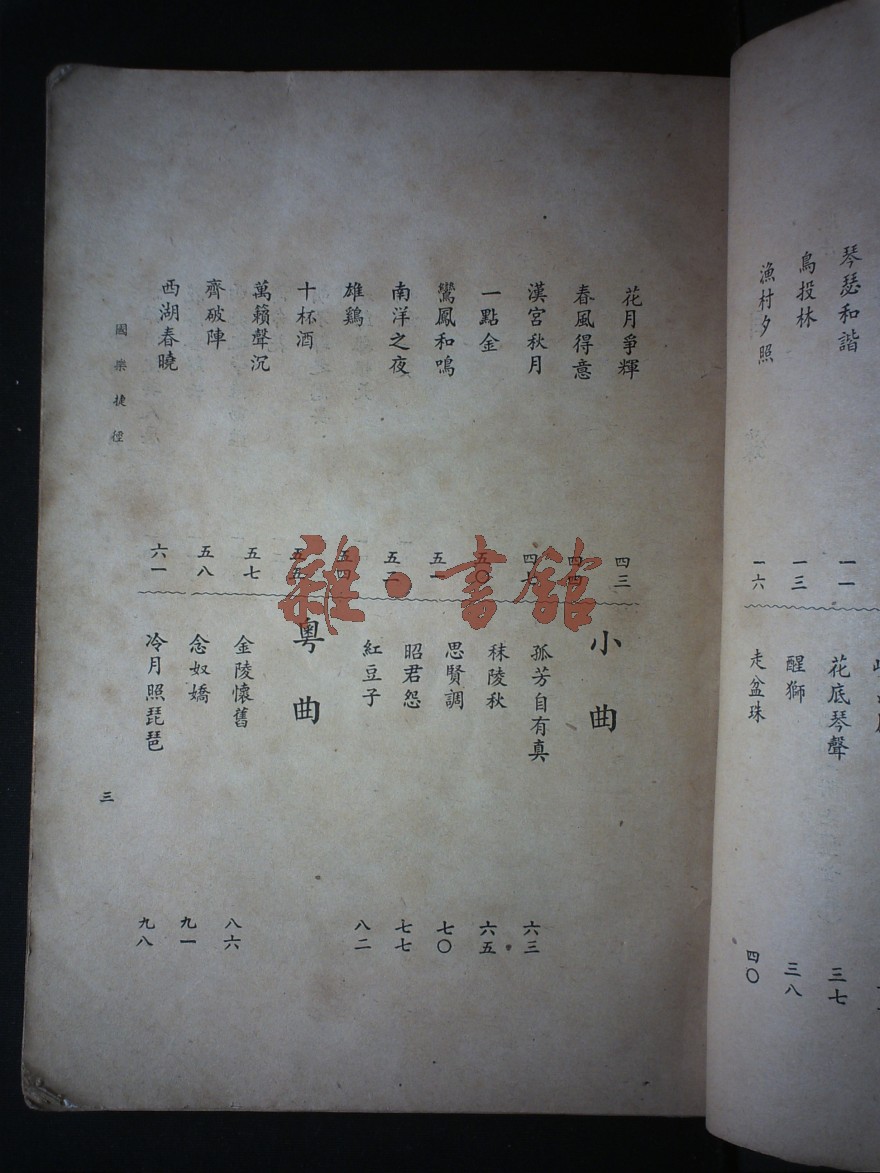 琴瑟和諧 一一
鳥投林 一三
漁村夕照 一六
花底琴聲 三七
醒獅 三八
走盆珠 四〇
花月爭輝 四三
春風得意 四四
漢宮秋月
一點金 五〇
鸞鳳和鳴 五一
南洋之夜 五二
雄鷄 五四
十杯酒 五五
萬籟聲沉 五七
齊破陣 五八
西湖春曉 六一
小曲
孤芳自有真 六三
秣陵秋 六五
思賢調 七〇
昭君怨 七七
紅豆子 八二
粵曲
金陵懷舊 八六
念奴嬌 九一
冷月照琵琶 九八
國樂捷徑
三
雜·書館